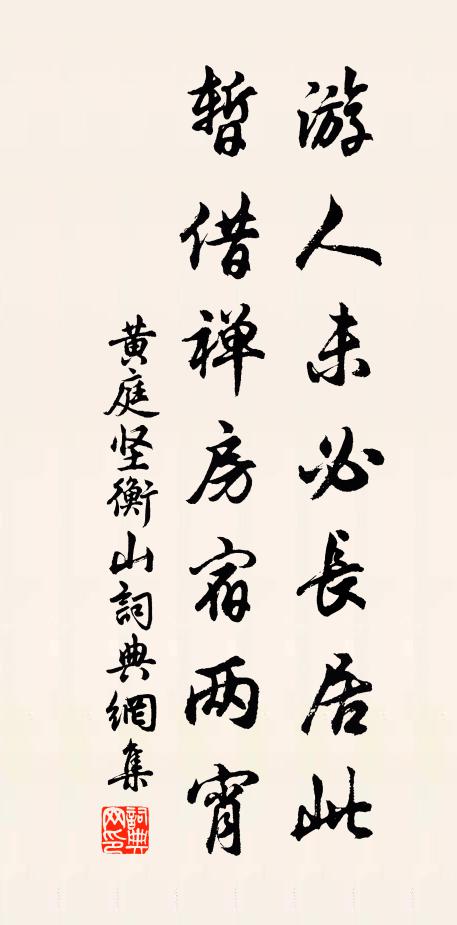 游人未必長居此
暫借禅房宿两宵
黄庭坚衡山詞典網集
詞典网印